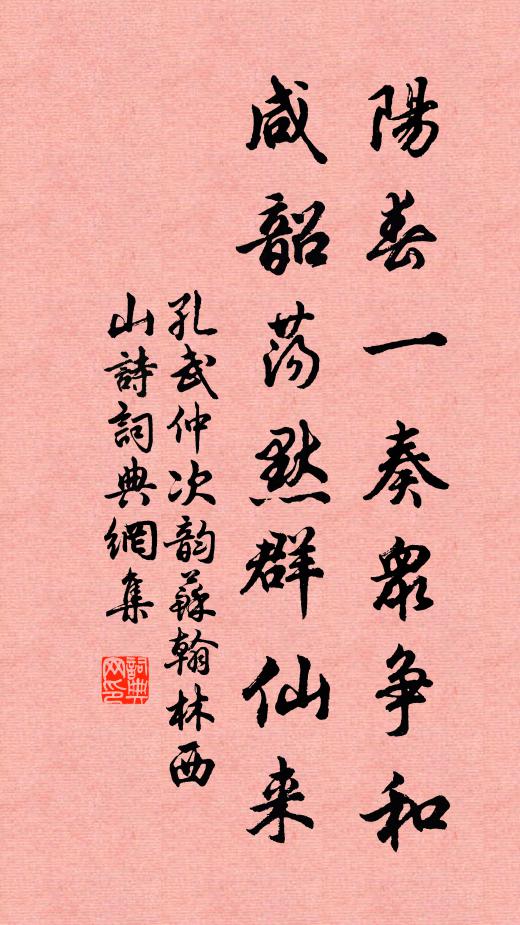 陽春一奏衆争和
咸韶荡默群仙来
孔武仲次韵蘇翰林西
山詩詞典網集
詞典网印